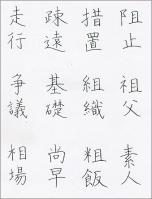 阻止 祖父 素人
措置 組織 粗飯
疎遠 基礎 尚早
走行 争議 相場